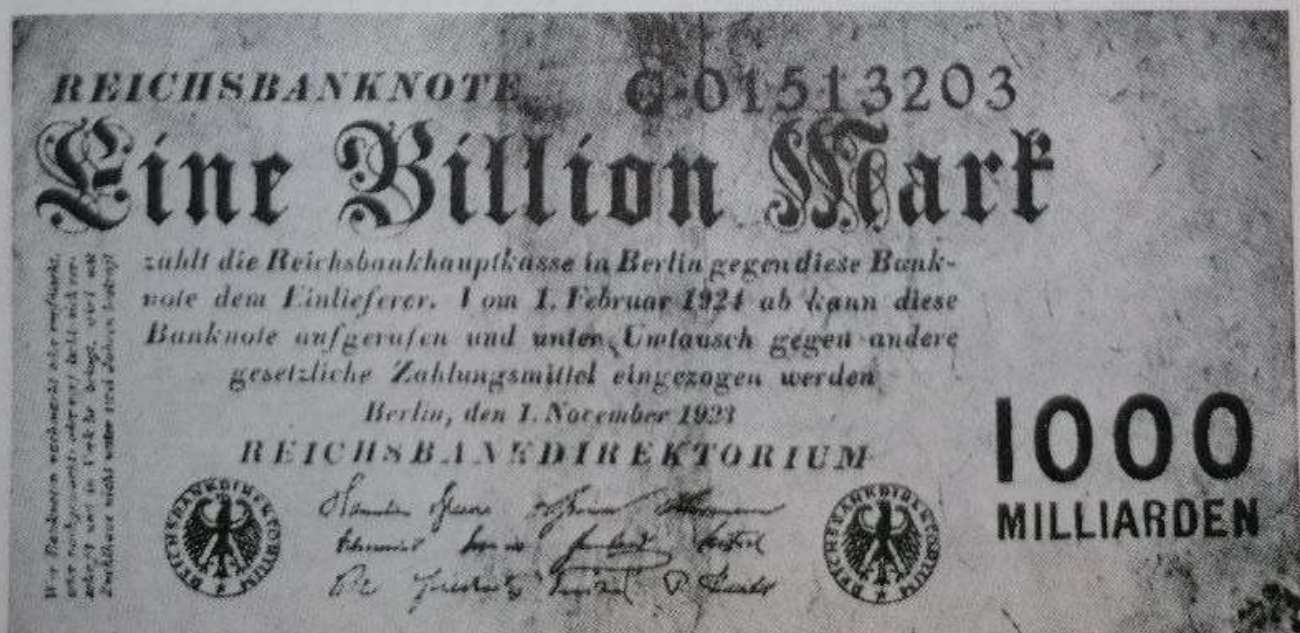 REICHSBANKNOTE G-01513203
Eine Billion Mark
zahlt die Reichsbankhauptkasse in Berlin gegen diese Bank-
note dem Einlieferer. Vom 1. Februar 1924 ab kann diese
Banknote aufgerufen und unter Umtausch gegen andere
gesetzliche Zahlungsmittel eingezogen werden
Berlin, den 1. November 1923
REICHSBANKDIREKTORIUM
REICHSBANKDIREKTORIUM
REICHSBANKDIREKTORIUM
1000
MILLIARDEN
Wer Banknoten nachmacht oder verfälscht,